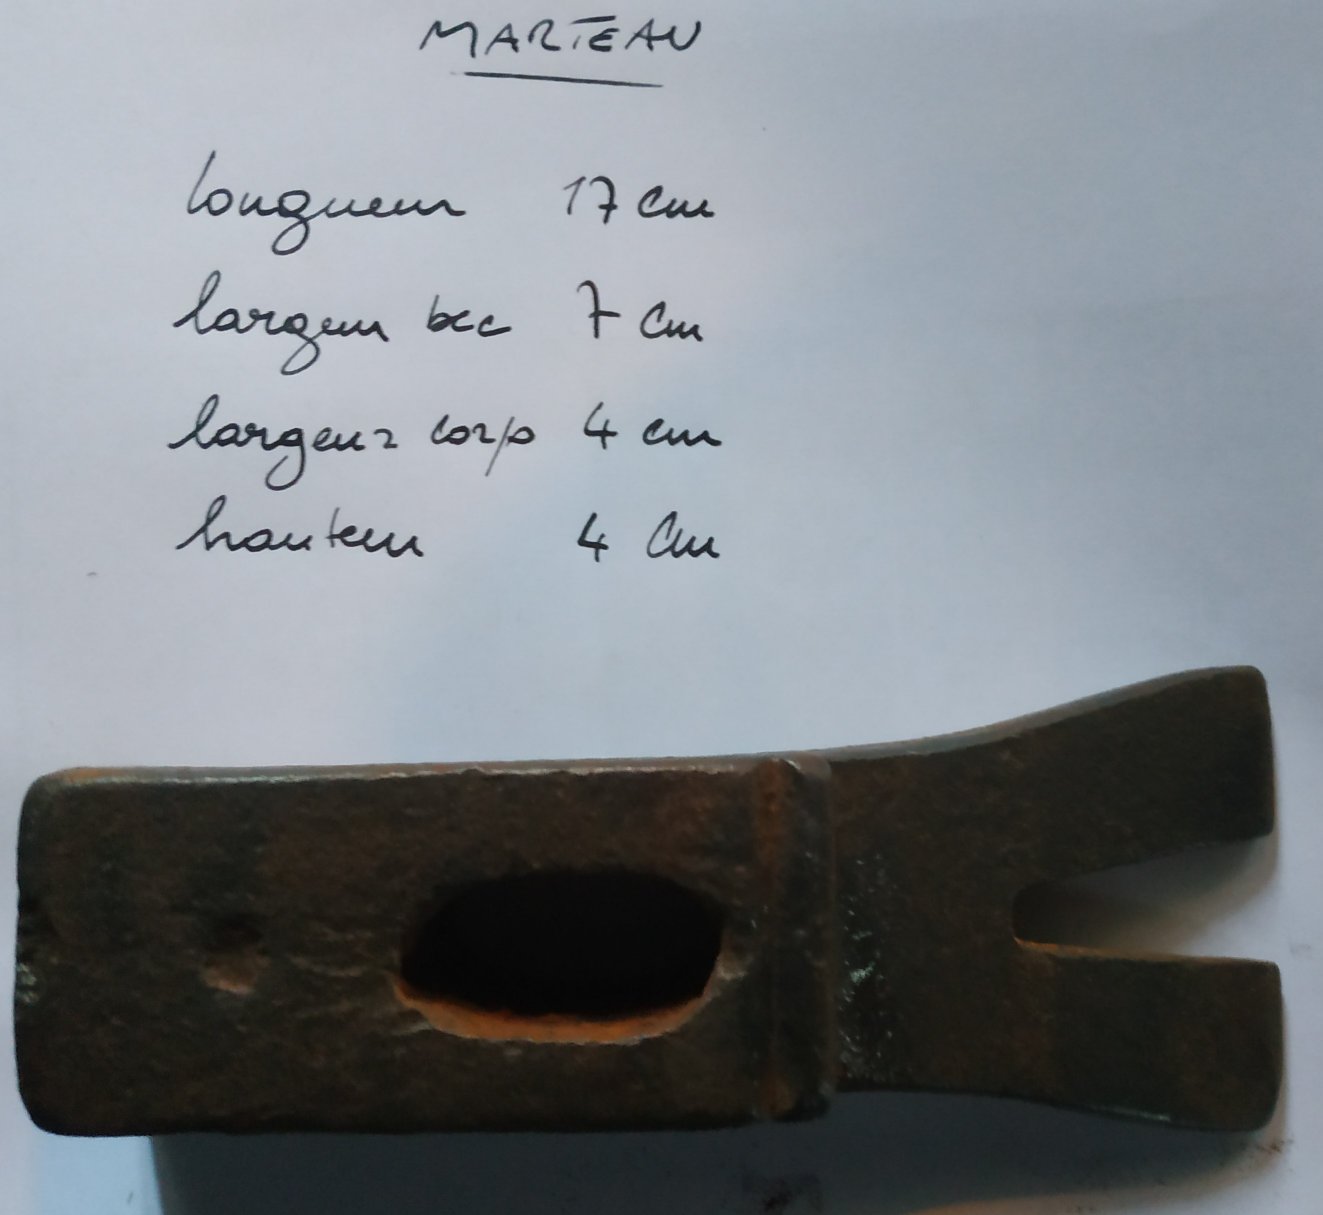 MARTEAU
longueur 17 cm
largeur bec 7 cm
largeur corp 4 cm
hauteur 4 cm